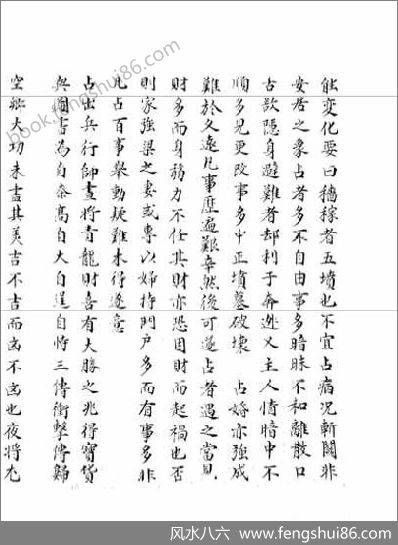 能变化要曰穑稼者五墳也不宜占病况斬関非
安居之象占者多不自由事多暗昧不和離散口
古欲隠身避難者却利于奔逃又主人情暗中不
順多見更改事多中正墳墓破壊 占婚亦强成
難於久遠凡事歷遍艱辛然後可遂占者遇之當見
財多而身弱力不任其財亦恐因財而起禍也否
則家強梁之妻或專以婦持門户多而有事多非
凡占百事舉動疑難未得遂意
占出兵行師晝將青龍財喜有大勝之兆得寳货
與圖書為自泰高自大自逞自恃三傳衝擊傳歸
空鄉大功未盡其美吉不吉而凶不凶也夜將尤
book.fengshui86.com
风水八六 - www.fengshui86.com